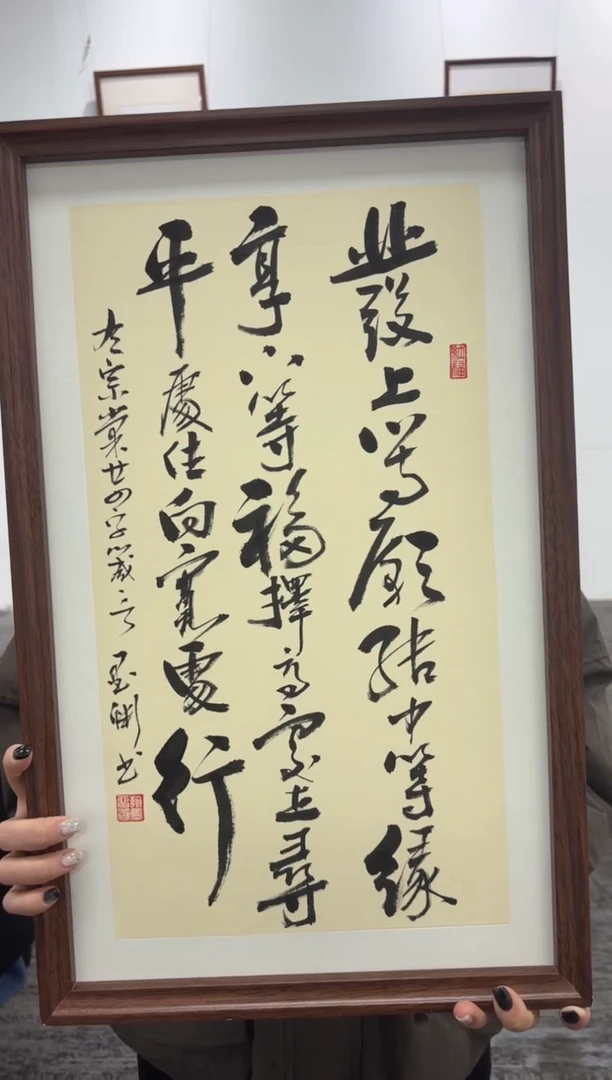 發上等願結中等緣
享下等福擇高處立尋
平處住向寬處行
左宗棠廿四字箴言 书